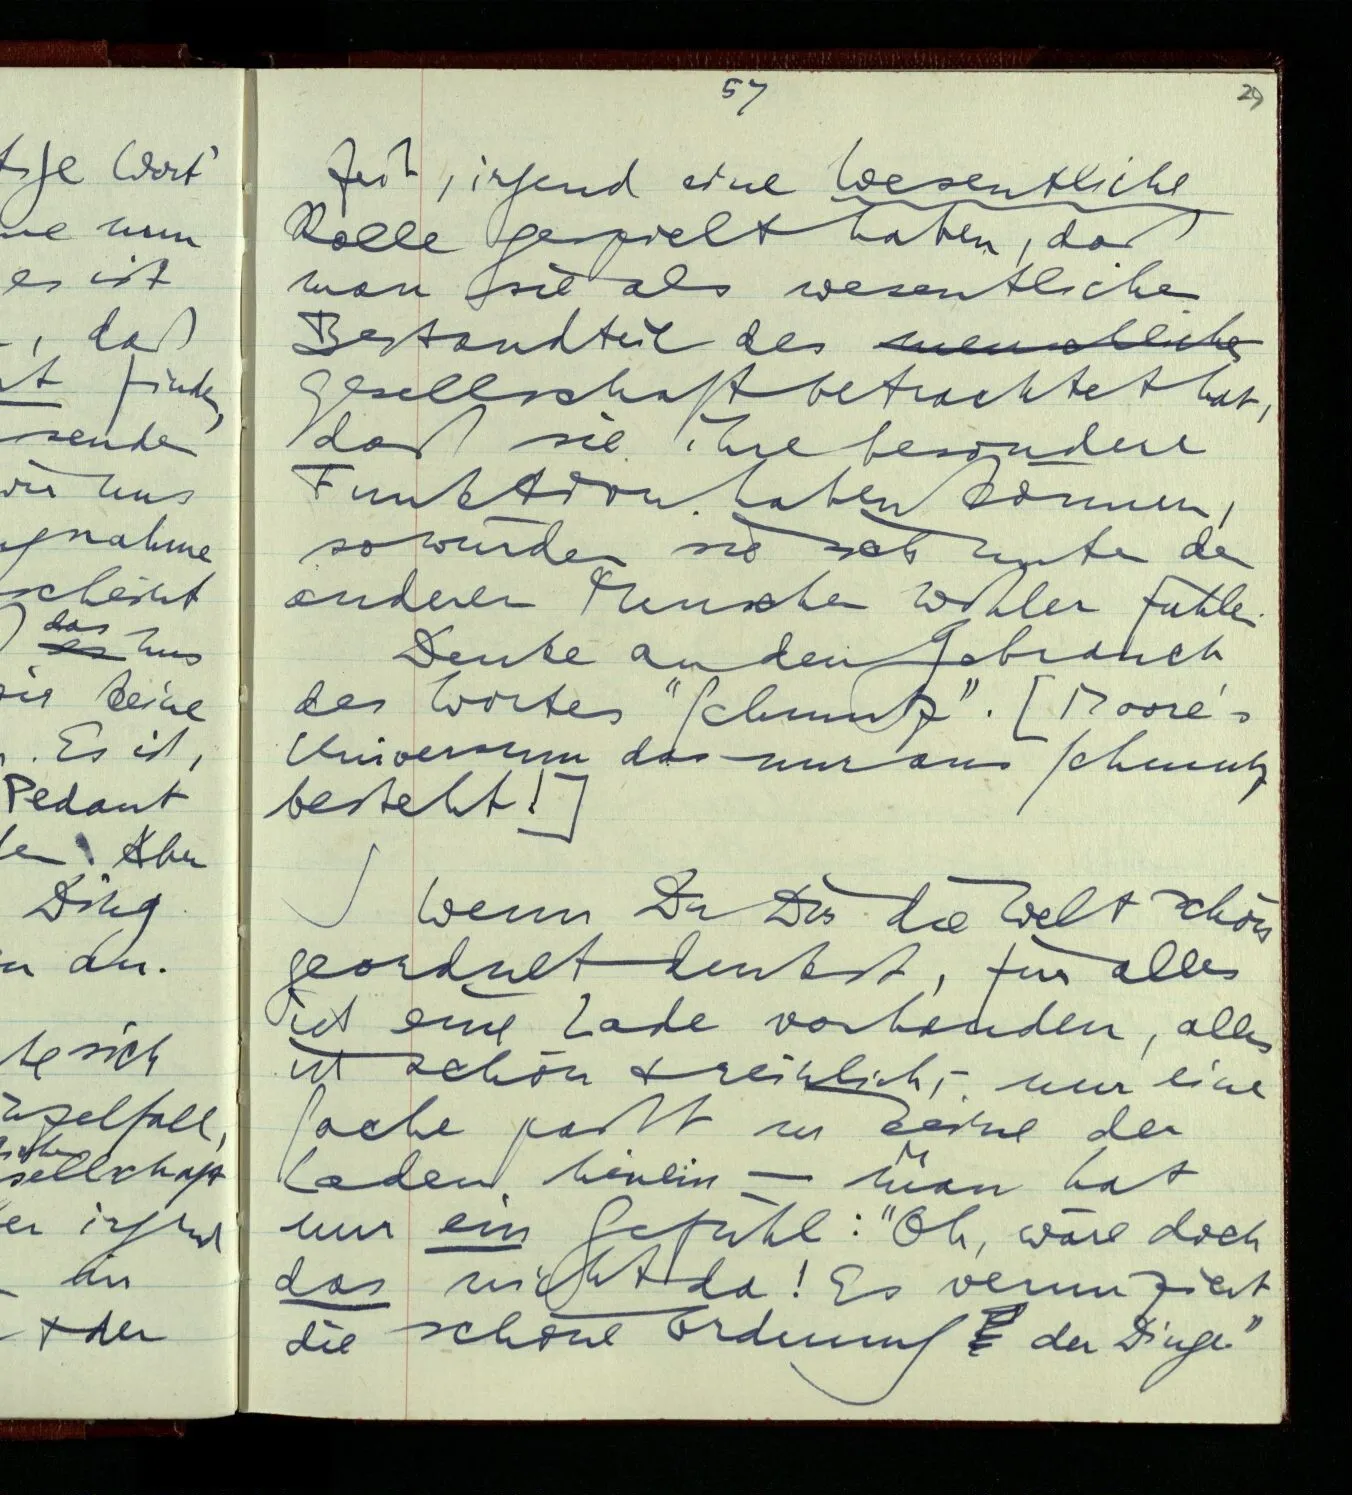 tige Wort'
nun
es ist
, daß
finden,
wir uns
scheint
das
es uns
wir keine
. Es ist,
Pedant
Aber
Ding
an.
sich
Einzelfall,
Gesellschaft
er irgend
in
+ der
57
29
Zeit, irgend eine wesentliche
Rolle gespielt haben, daß
man sie als wesentliche
Bestandteil der menschlichen
Gesellschaft betrachtet hat,
daß sie ihre besondere
Funktion haben können,
so würden sie sich unter den
anderen Menschen wohler fühlen.
Denke an den Gebrauch
des Wortes "Schmutz". [Moore's
Universum das nur aus Schmutz
besteht!]
Wenn Du Dir die Welt schön
geordnet denkst, für alles
ist eine Lade vorhanden, alles
ist schön + reinlich; nur eine
Sache paßt in keine der
Laden hinein — man hat
nur ein Gefühl: "Oh, wäre doch
das nicht da! Es verunziert
die schöne Ordnung der Dinge"